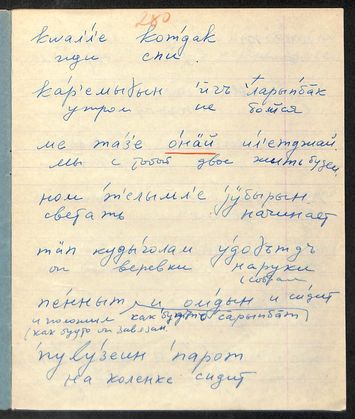 280
кwал́л́е ко́тдак
иди спи.
ка́р'емыɣын 'и́гъ 'ларыпба̄к
утром не бойся
ме таӡе о́на̄й ил'етджай.
мы с тобой двое жить будем
ном 'т'елымл'е ӱ́бырын.
светать начинает
тӓп кудыголам у́доɣътдъ
он веревки на руки
(собрал
пе́нныт и омды́н и сидит
и положил как будто сарыпбат)
(как будто он завязан.
'пулу́зеин 'парот
на коленке сидит